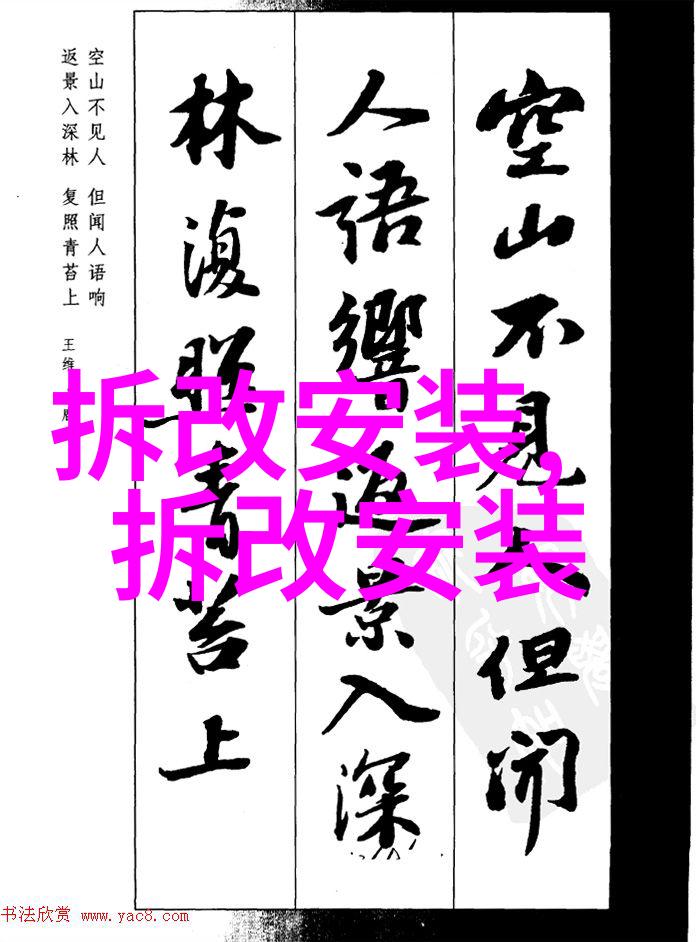 空山不見人但聞
人語響返景入深
林復照青苔上
空山不见人 但闻人语响
返景入深林 复照青苔上 王维
拆改安装,
拆改安装
书法欣赏 www.yac8.com